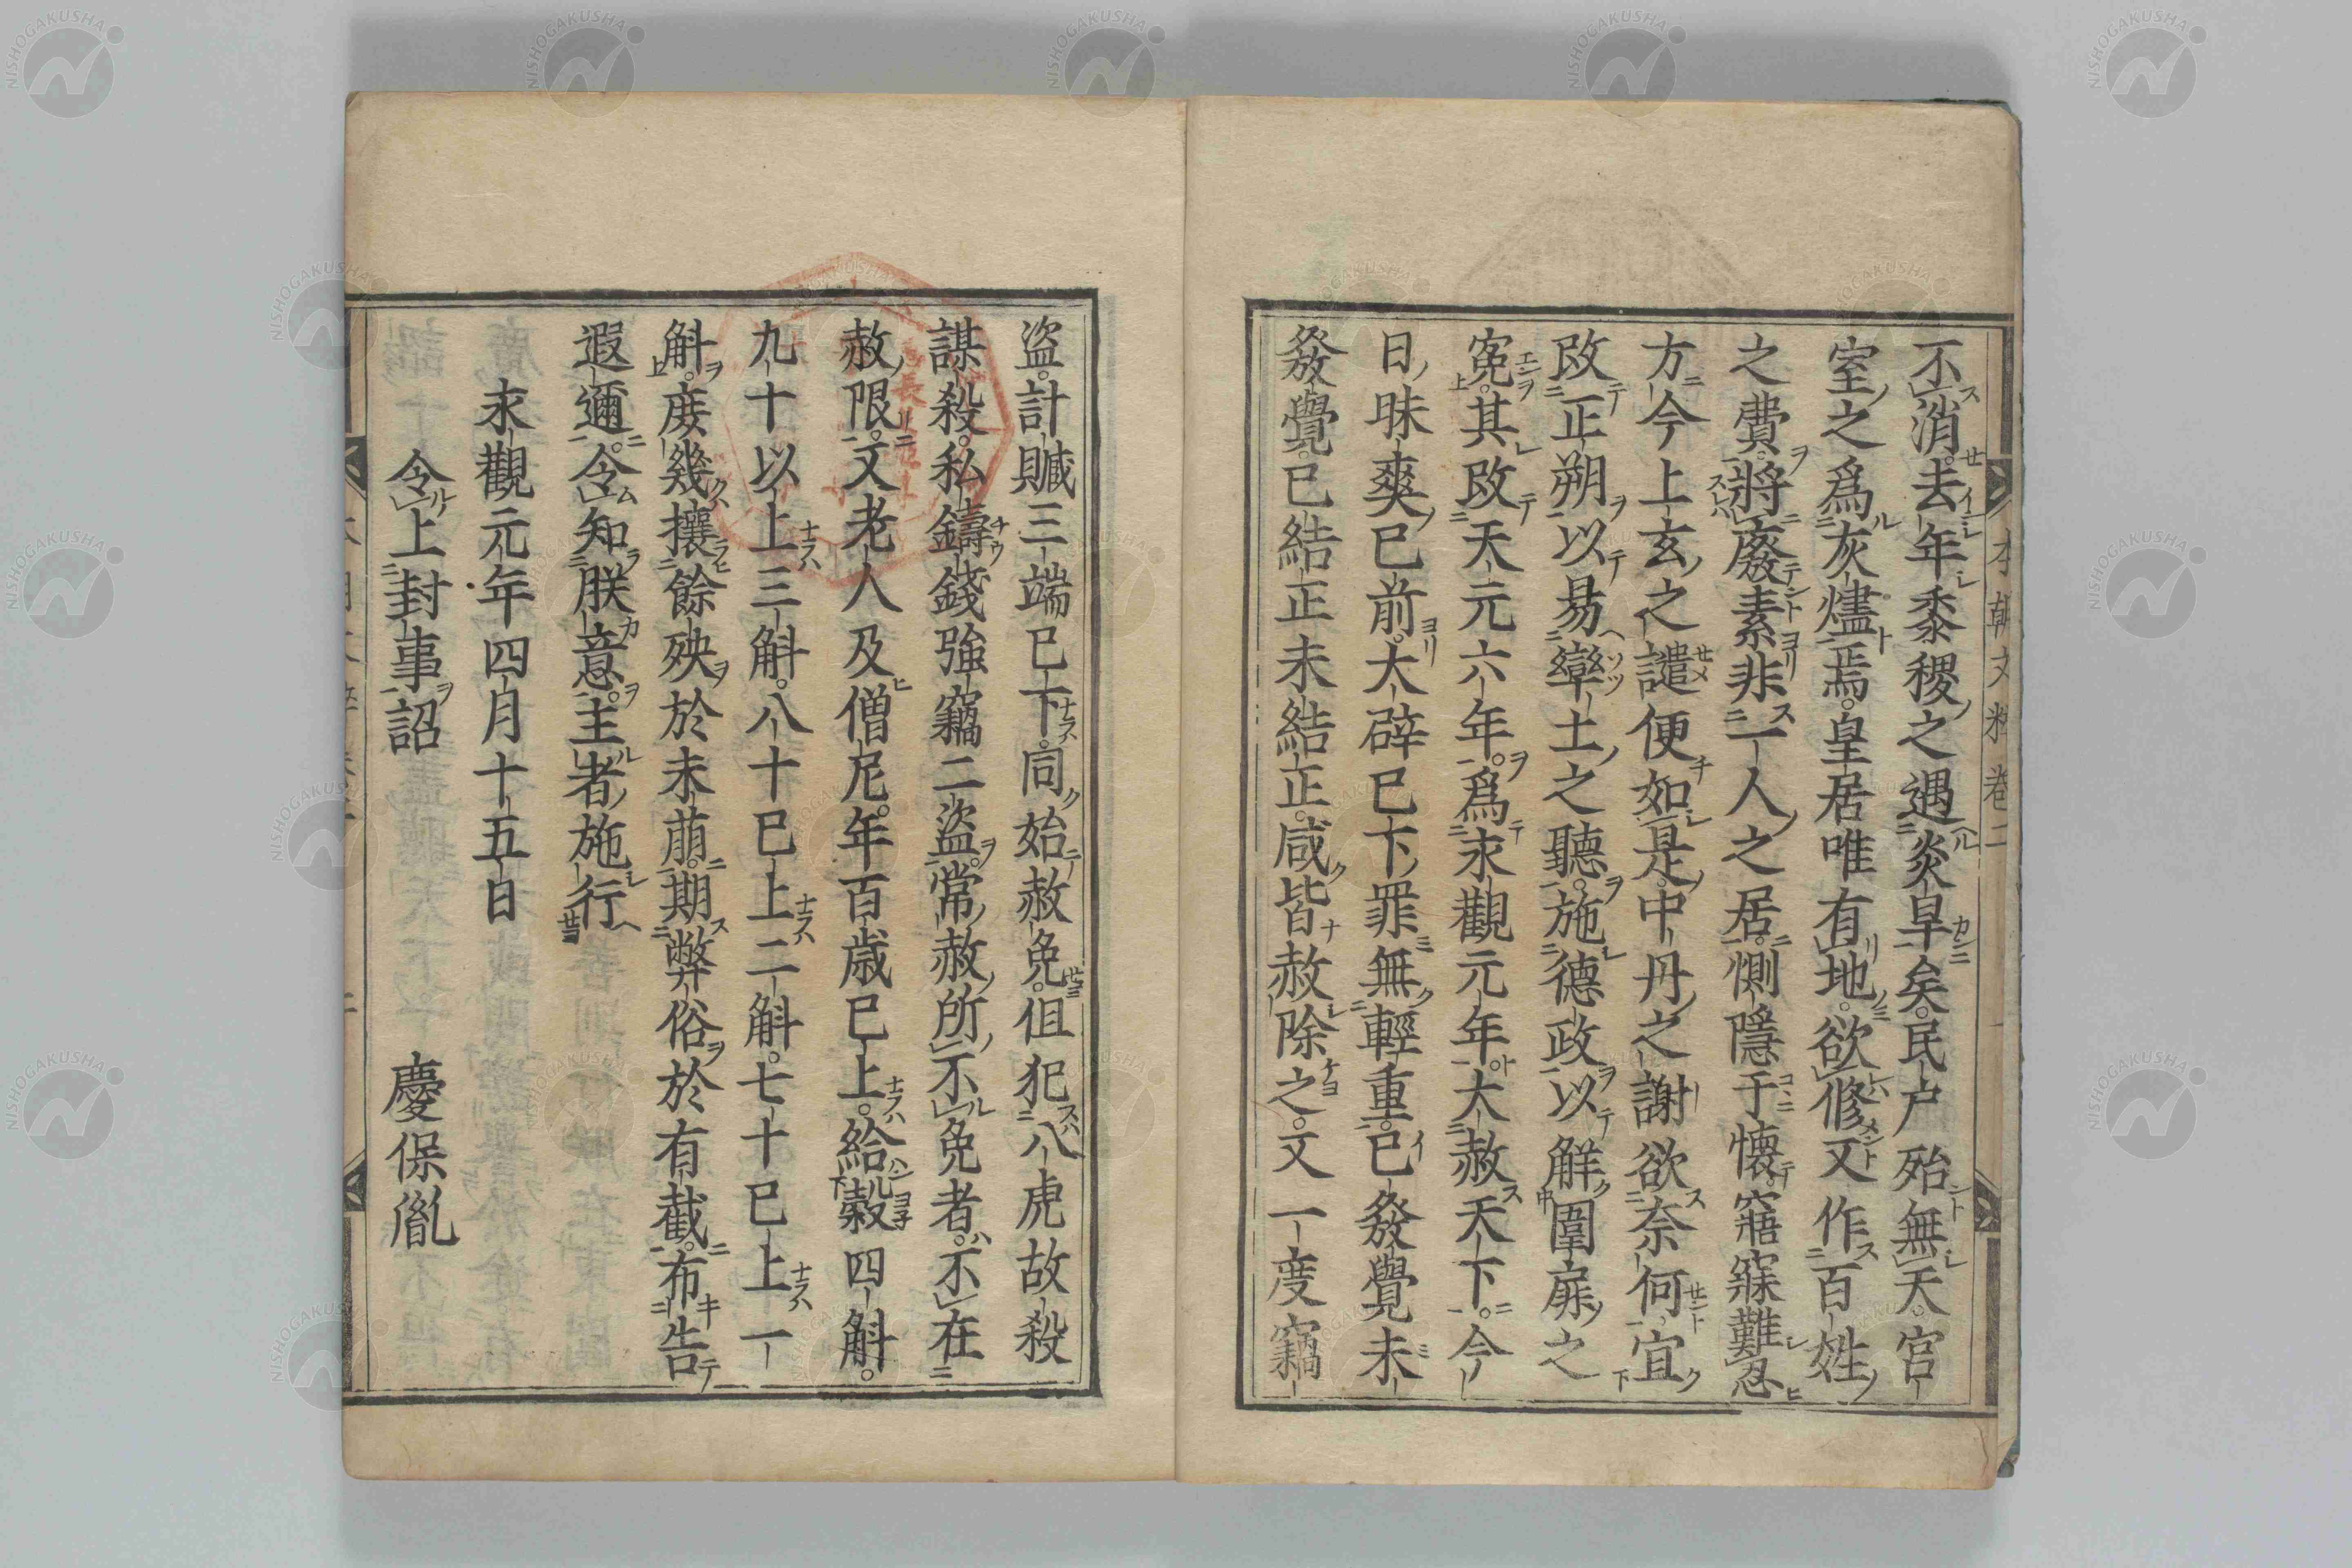 不消去年黍稷之遇炎旱矣民戸殆無天宮
室之爲灰燼焉皇居唯有地欲修又作百姓
之費將廢素非一人之居惻隱于懷寤寐難忍
方今上玄之譴便如是中丹之謝欲奈何宜
改正朔以易率土之聽施德政以解圍扉之
寃其改天元六年爲永觀元年大赦天下今
日昧爽已前大辟已下罪無輕重已發覺未
發覺已結正未結正咸皆赦除之又一度竊
盗計贓三端已下同始赦免但犯八虐故殺
謀殺私鑄錢強竊二盗常赦所不免者不在
赦限又老人及僧尼年百歳已上給穀四斛
九十以上三斛八十已上二斛七十已上一
斛庶幾攘餘殃於未萠期弊俗於有截布告
遐邇令知朕意主者施行
永觀元年四月十五日
令上封事詔 慶保胤
本朝文粹卷二